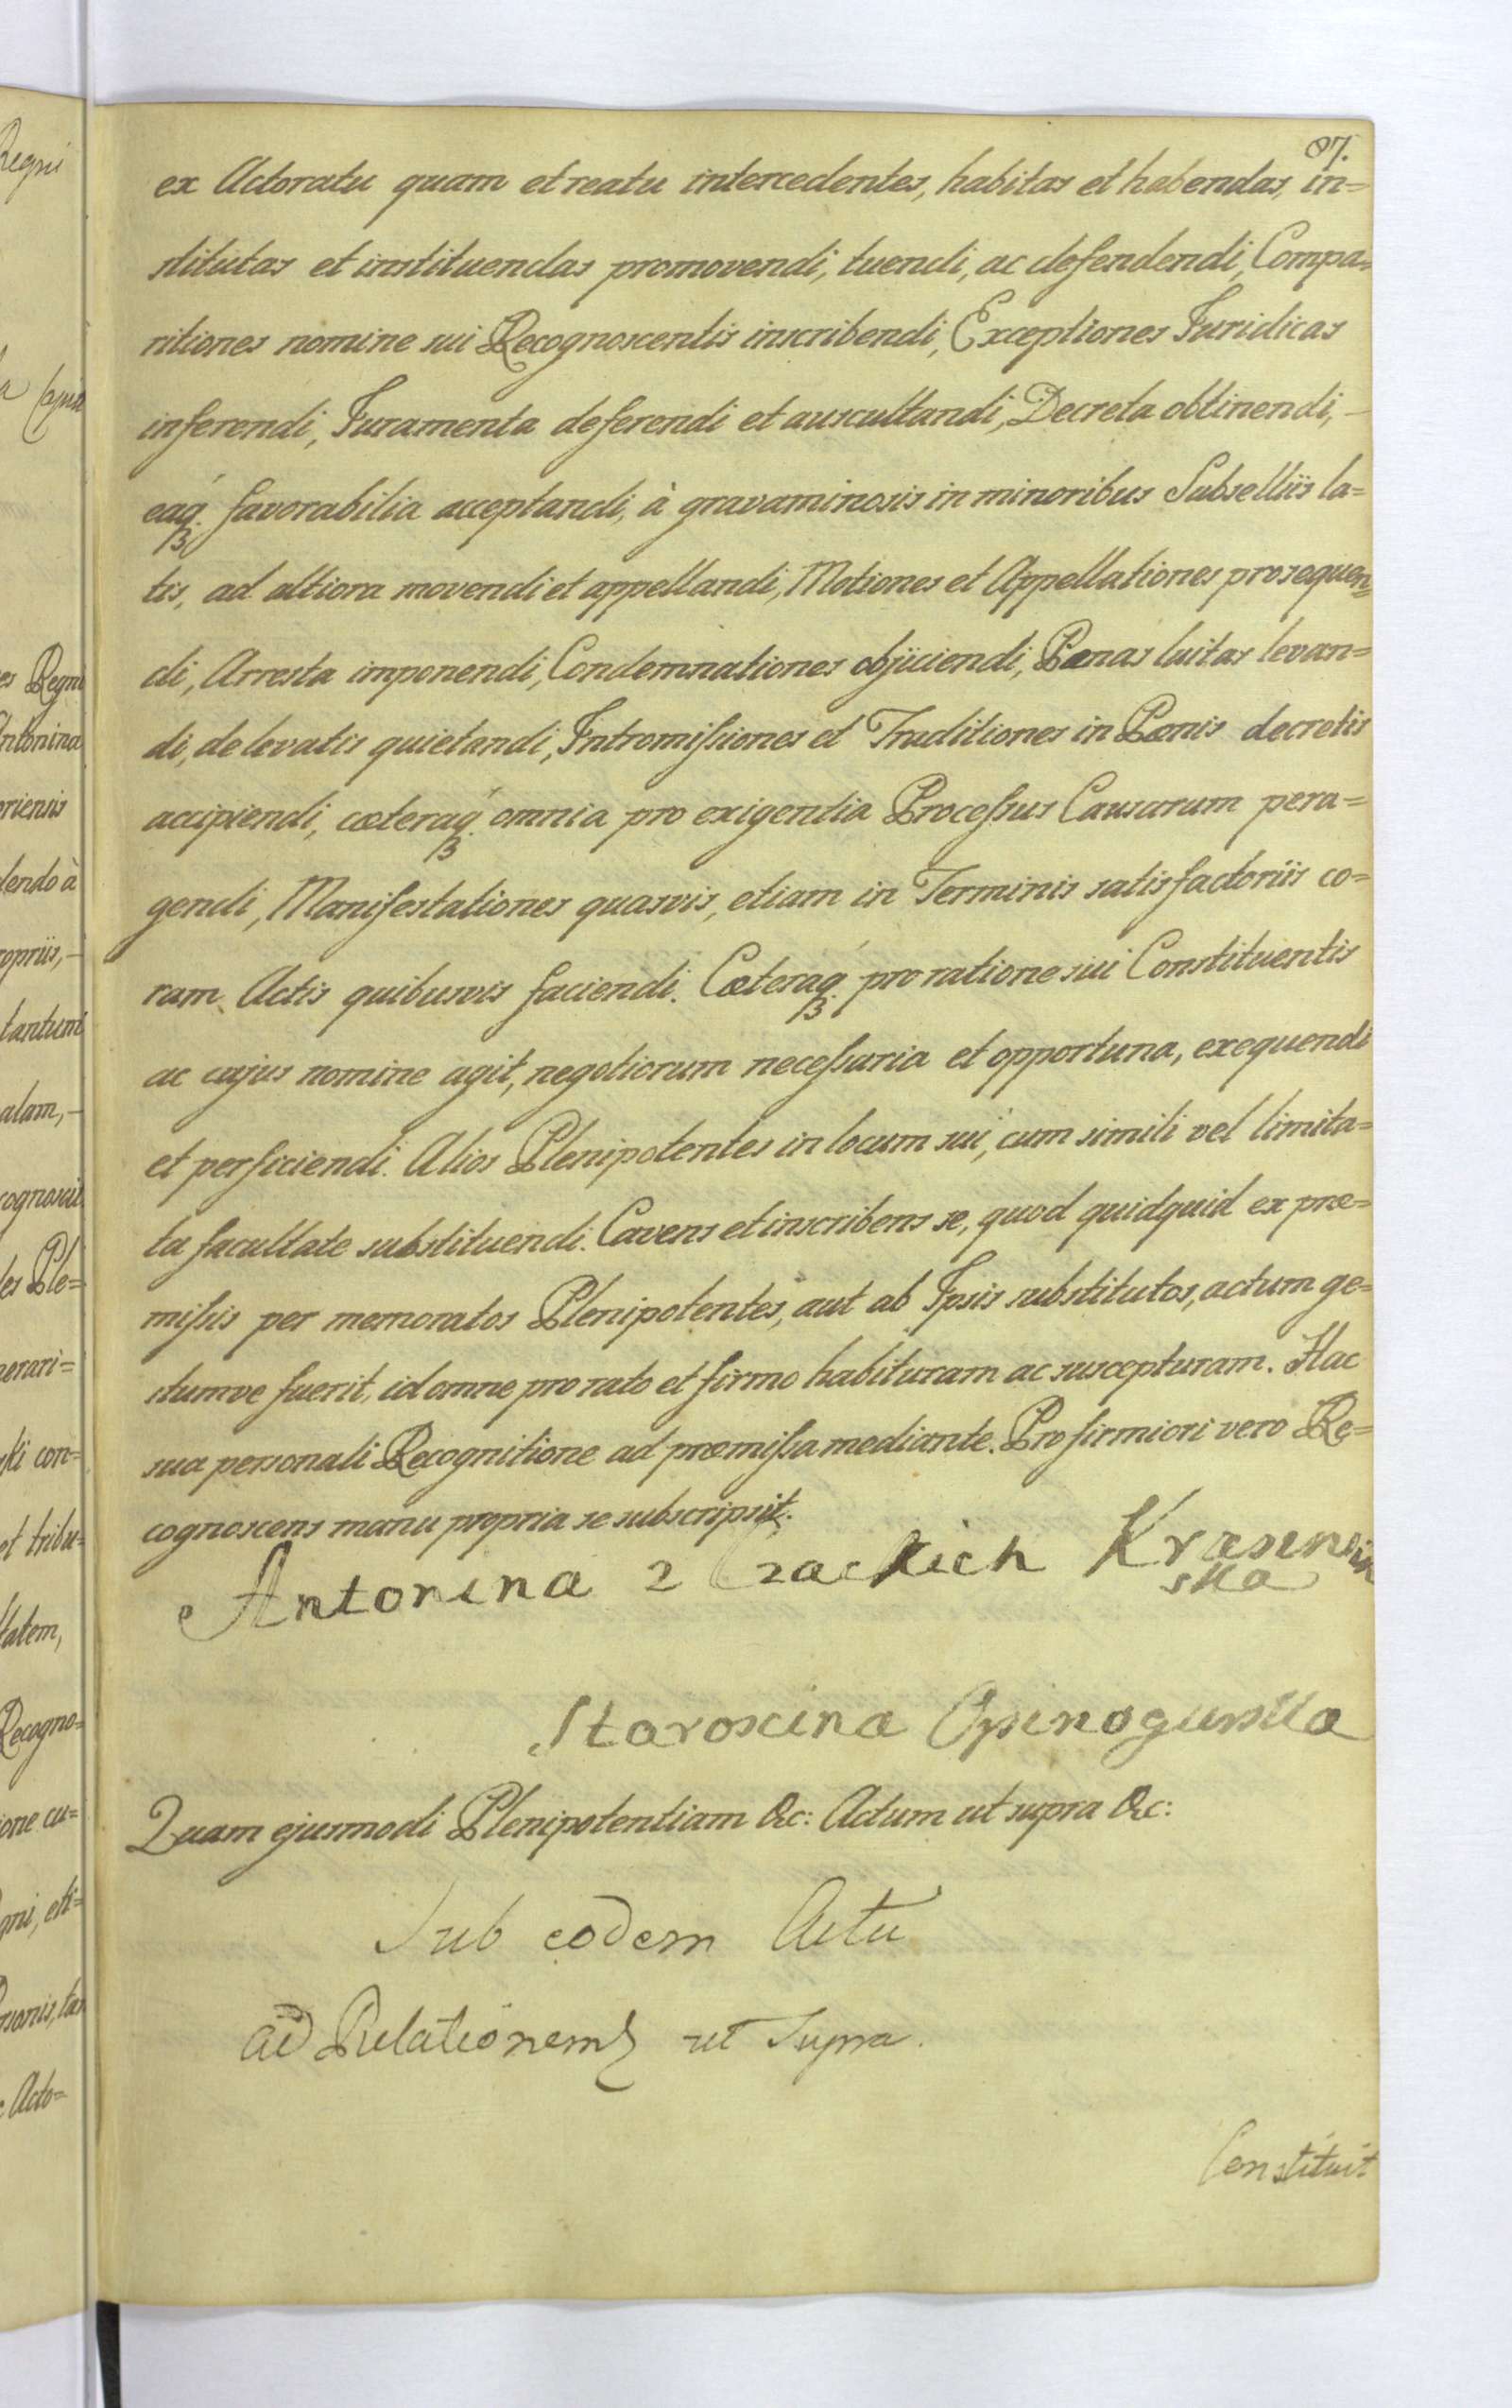 87.
ex Actoratu quam et reatu intercedentes, habitas et habendas, in=
stitutas et instituendas promovendi, tuendi, ac defendendi, Compa=
ritiones nomine sui Recognoscentis inscribendi, Exceptiones Juridicas
inferendi, Juramenta deferendi et auscultandi, Decreta obtinendi, –
eaq́ꝫ favorabilia acceptandi, à gravaminosis in minoribus Subselliis la=
tis, ad altiora movendi et appellandi, Motiones et Appellationes prosequen=
di, Arresta imponendi, Condemnationes objiciendi, Pœnas luitas levan=
di, de levatis quietandi, Intromissiones et Traditiones in Bonis decretis
accipiendi, cœteraq́ꝫ omnia pro exigentia Processus Causarum pera=
gendi, Manifestationes quasvis, etiam in Terminis satisfactoriis co=
ram Actis quibusvis faciendi. Cœteraq́ꝫ pro ratione sui Constituentis
ac cujus nomine agit, negotiorum necessaria et opportuna, exequendi
et perficiendi. Alios Plenipotentes in locum sui, cum simili vel limita=
ta facultate substituendi. Cavens et inscribens se, quod quidquid ex præ=
missis per memoratos Plenipotentes, aut ab Ipsis substitutos, actum ge=
stumve fuerit, id omne pro rato et firmo habituram ac suscepturam. Hac
sua personali Recognitione ad præmissa mediante. Pro firmiori vero Re=
cognoscens manu propria se subscripsit.
Antonina z Czackich Krasin
ska
Staroscina Opinogurska
Quam ejusmodi Plenipotentiam &c: Actum ut supra &c:
Sub eodem Actu
ad Relationem ut Supra.
Constituit
Regni
Regni
Antonina
oriensis
dendo à
ropriis, –
tantum
alam, –
cognoscit
es Ple=
nerari=
ski con=
et tribu=
tatem,
Recogno=
ione cu=
gni, eti=
rsonis, tam
Acto=